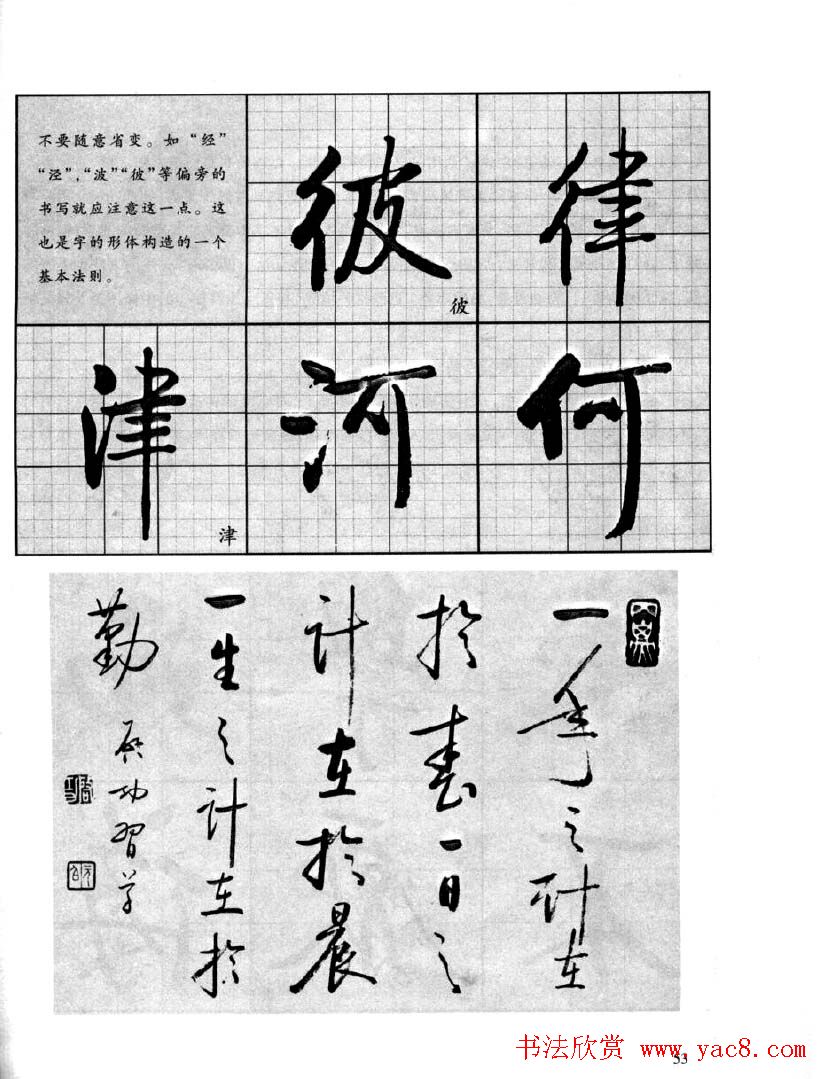 不要随意省变。如“经”
“泾”，“波”“彼”等偏旁的
书写就应注意这一点。这
也是字的形体构造的一个
基本法则。
彼
彼
律
津
津
河
何
一年之计在
於春一日之
计在於晨
一生之计在於
勤
启功习草
53
书法欣赏 www.yac8.com